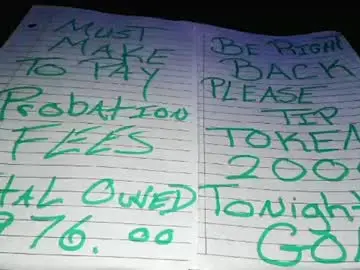 MUST
MAKE
TO PAY
PROBATION
FEES
TAL OWNED
976.00
BE RIGHT
BACK
PLEASE
TIP
TOKEN
200
TONIGHT
GO